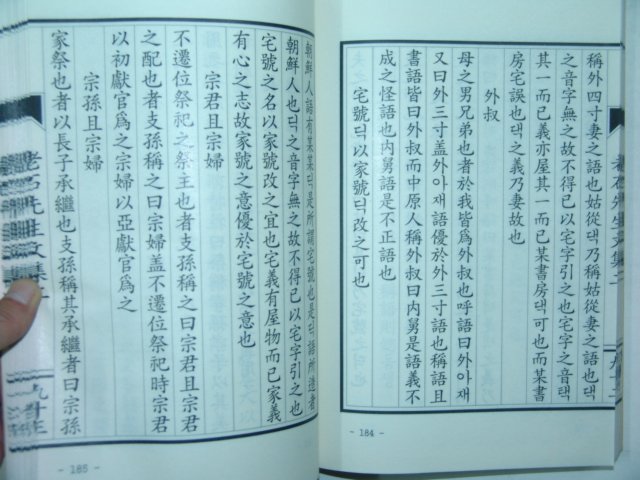 稱外四寸妻之語也姑從댁乃稱姑從妻之語也댁
之音字無之故不得已以宅字引之也宅字之音택
其一而已義亦屋其一而已某書房댁可也而某書
房宅誤也댁之義乃妻故也
外叔
母之男兄弟也者於我皆爲外叔也呼語曰外아재
又曰外三寸盖外아재語優於外三寸語也稱語且
書語皆曰外叔而中原人稱外叔曰內舅是語義不
成之怪語也內舅語是不正語也
宅號딕以家號딕改之可也
- 184 -
朝鮮人語有某某딕是所謂宅號也是딕語所造者
朝鮮人也딕之音字無之故不得已以宅字引之也
宅號之名以家號改之宜也宅義有屋物而已家義
有心之志故家號之意優於宅號之意也
宗君且宗婦
不遷位祭祀之祭主也者支孫稱之曰宗君且宗君
之配也者支孫稱之曰宗婦盖不遷位祭祀時宗君
以初獻官爲之宗婦以亞獻官爲之
宗孫且宗婦
家祭也者以長子承繼也支孫稱其承繼者曰宗孫
- 185 -